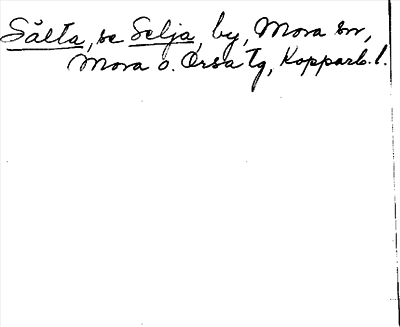 Sälta, se Selja, by, Mora sn,
Mora o. Orsa tg, Kopparb. l.